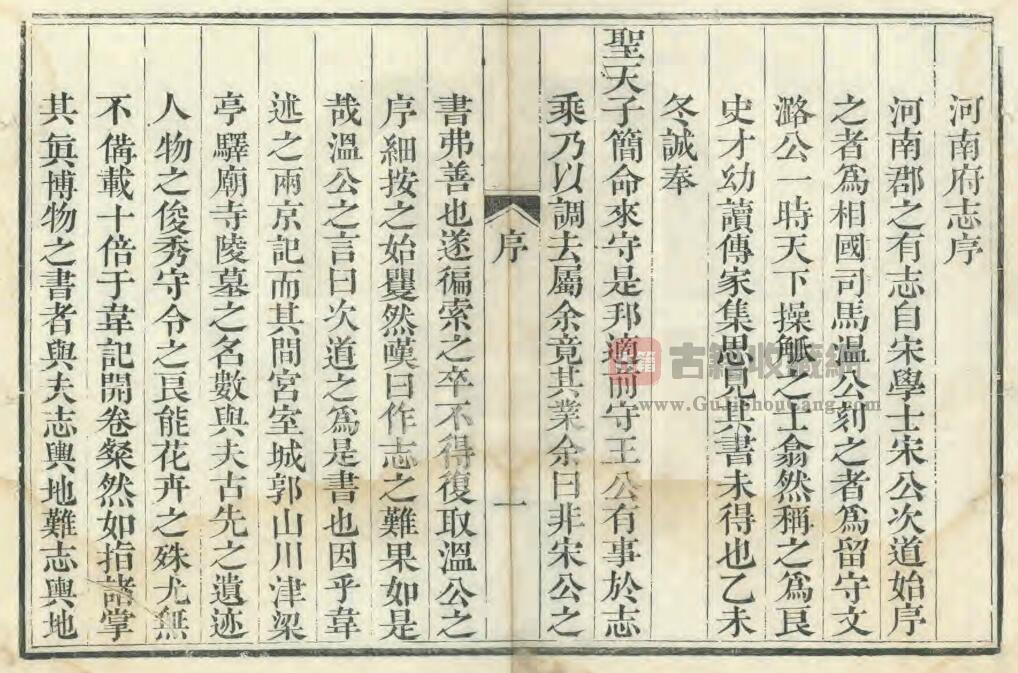 河南府志序
河南郡之有志自宋學士宋公次道始序
之者爲相國司馬温公刻之者爲留守文
潞公一時天下操觚之士翕然稱之爲良
史才幼讀傳家集思見其書未得也乙未
冬誠奉
聖天子簡命來守是邦適前守王公有事於志
乘乃以調去屬余竟其業余曰非宋公之
序
一
書弗善也遂徧索之卒不得復取溫公之
序細按之始矍然嘆曰作志之難果如是
哉溫公之言曰次道之爲是書也因乎韋
述之兩京記而其間宮室城郭山川津梁
亭驛廟寺陵墓之名數與夫古先之遺迹
人物之俊秀守令之良能花卉之殊尤無
不備載十倍于韋記開卷粲然如指諸掌
其眞博物之書者與夫志輿地難志輿地
古籍
古籍收藏網
www.GuJiShouCang.com